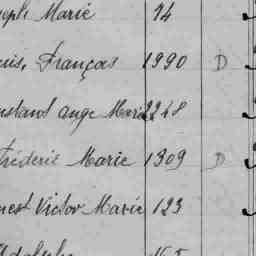 seph Marie 74
uis, François 1990 D
nstant ange Marie 2248
Fréderic Marie 1309 D
nest Victor Marie 123
Adolphe